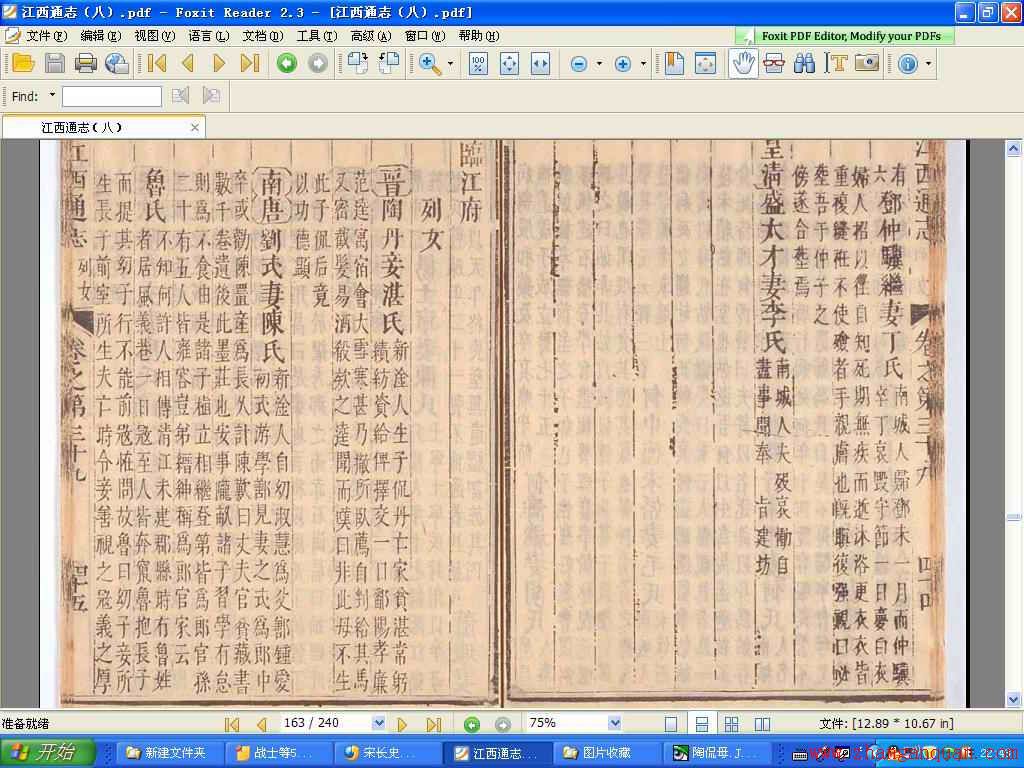 江西通志（八）.pdf - Foxit Reader 2.3 - [江西通志（八）.pdf]
文件(F) 编辑(E) 视图(V) 语言(L) 文档(D) 工具(T) 高级(A) 窗口(W) 帮助(H)
Foxit PDF Editor, Modify your PDFs
Find:
江西通志（八）
江西通志
卷之第三十九
四十四
有鄧仲驥繼妻丁氏
南城人歸鄧未一月而仲驥
辛丁哀毀守節一日夢白衣
婦人招以
自知死期無疾而逝沐浴更衣衣皆
重複縫紝不使殮者手親膚也既
後強視口
葬吾于仲子之
傍遂合葬焉
皇清盛大才妻李氏
南城人夫歿哀慟自
盡事聞奉 旨建坊
臨江府
列女
晉陶丹妾湛氏
新淦人生子侃丹亡家貧湛常躬
績紡資給俾擇交一日鄱陽孝廉
范逵寓宿會大雪寒甚乃撤所臥薦自剉給其馬
又密截髮易酒殽欸之逵聞而嘆曰非此母不生
此子侃后竟
以功德顯
南唐劉式妻陳氏
新淦人自幼淑慧為父鄱鍾愛
初式游學鄱見妻之式為郎中
卒或勸陳置産為長久計陳歎曰丈夫官貧藏書
數千卷遺後此墨莊也安事隴畝諸子習學有怠
則為不食由是諸子植立相繼登第皆為郎官孫
二十有五人皆雍容豈弟縉紳稱為郎官家云
魯氏
不知何許人相傳清江未建郡縣時有魯姓
者居風義巷一日冦至人皆奔竄魯抱長子
而提其幼子行不能前冦恠問故魯曰幼子妾所
生長子前室所生夫亡時令妾善視之冦義之厚
江西通志
列女
卷之第三十九
四十五
准备就绪
163 / 240
75%
文件: [12.89 * 10.67 in]
开始
新建文件夹
战士等5...
宋长史...
江西通志...
图片收藏
陶侃母.J...